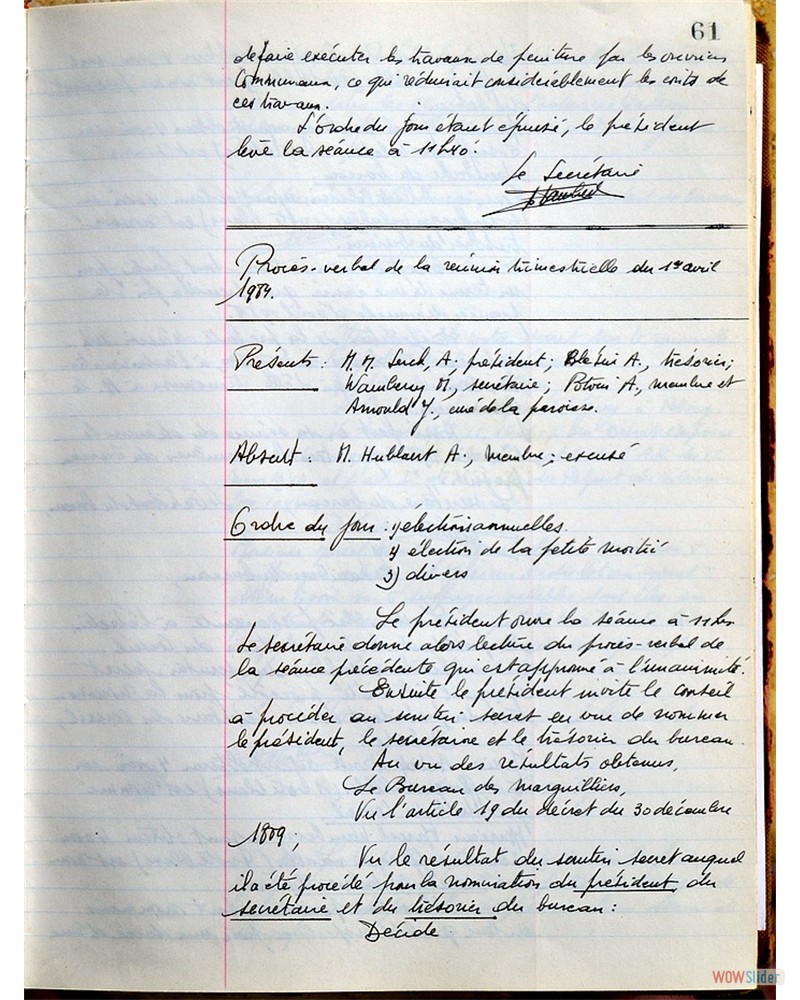 61
de faire exécuter les travaux de peinture par les ouvriers
communaux, ce qui réduirait considérablement les coûts de
ces travaux.
L'ordre du jour étant épuisé, le président
lève la séance à 11h40.
Le Secrétaire
Procès-verbal de la réunion trimestrielle du 1er avril
1984.
Présents : M.M. A., président; A., trésorier;
M., secrétaire; A., membre et
Arnould Y., curé de la paroisse.
Absent : M. Hublart A., membre; excusé
Ordre du jour : 1) élections annuelles.
2) élection de la petite moitié
3) divers
Le président ouvre la séance à 11hs
Le secrétaire donne alors lecture du procès-verbal de
la séance précédente qui est approuvé à l'unanimité.
Ensuite le président invite le conseil
à procéder au scrutin secret en vue de nommer
le président, le secrétaire et le trésorier du bureau.
Au vu des résultats obtenus,
Le Bureau des Marguilliers,
Vu l'article 19 du décret du 30 décembre
1809;
Vu le résultat du scrutin secret auquel
il a été procédé pour la nomination du président, du
secrétaire et du trésorier du bureau :
Décide
WOWSlider